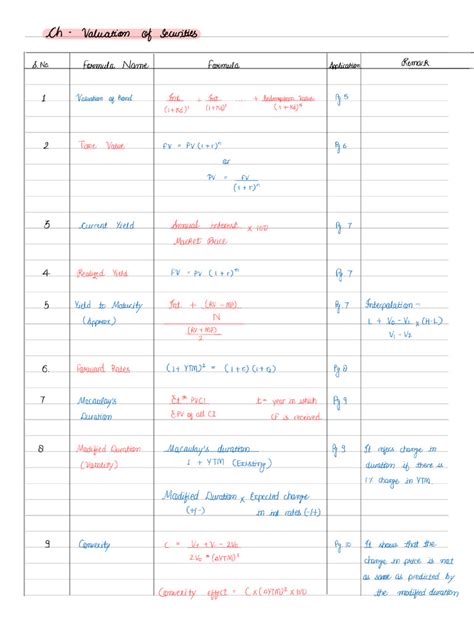 Ch - Valuation of Securities
S.No. Formula Name Formula Application Remark
1 Valuation of Bond Int + Int ... + Redemption Value Pg 5
(1+Kd)¹ (1+Kd)² (1+Kd)ⁿ
2 Time Value FV = PV (1+r)ⁿ Pg 6
or
PV = FV
(1+r)ⁿ
3 Current Yield Annual interest × 100 Pg. 7
Market Price
4. Realized Yield FV = PV (1+r)ⁿ Pg. 7
5 Yield to Maturity Int + (RV - MP) Pg. 7 Interpolation -
(Approx.) N L + V₀ - V₂ × (H-L)
(RV + MP) V₁ - V₂
2
6. Forward Rates (1+ YTM)² = (1+r₁)(1+r₂) Pg 8
7 Macaulay's Σt* PVCI t = year in which Pg 9
Duration ΣPV of all CI CF is received.
8 Modified Duration Macaulay's duration Pg 9 It refers change in
(Volatility) 1 + YTM (Existing) duration if there is
1% change in YTM.
Modified Duration × Expected change
(+/-) in int rates (-/+)
9 Convexity C = V₊ + V₋ - 2V₀ Pg. 10 It shows that the
2V₀ * (ΔYTM)² change in price is not
as same as predicted by
Convexity effect = C×(ΔYTM)² × 100 the modified duration